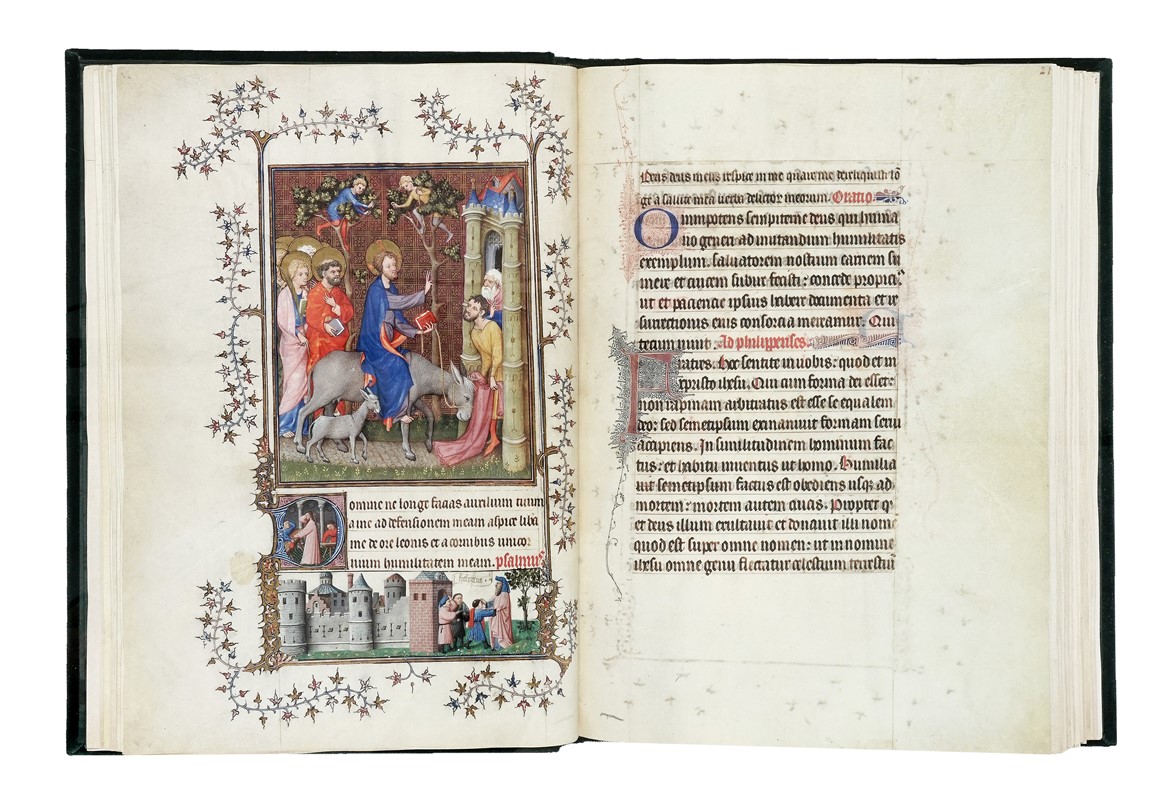 omine ne longe facias auxilium tuum
a me ad defensionem meam aspice liba
me de ore leonis et a cornibus unicor
nium humilitatem meam. psalmus
21
Deus deus meus respice in me quare me dereliquisti lo
ge a salute mea verba delictor meorum. Oratio
Omnipotens sempiterne deus qui huma
no generi ad imitandum humilitatis
exemplum. salvatorem nostrum carnem su
mere et crucem subire fecisti: concede propici
ut et paciencie ipsius habere documenta et re
surrectionis eius consorcia mereamur. Qui
tecum vivit. Ad philippenses.
Fratres. Hoc sentite in vobis: quod et in
xpristo ihesu. Qui cum forma dei esset:
non rapinam arbitratus est esse se equalem
deo: sed semetipsum exinanivit formam servi
accipiens. In similitudinem hominum fac
tus: et habitu inventus ut homo. Humilia
vit semetipsum factus est obediens usque ad
mortem: mortem autem crucis. Propter q
et deus illum exaltavit et donavit illi nome
quod est super omne nomen: ut in nomine
ihesu omne genu flectatur celestium terrestriu